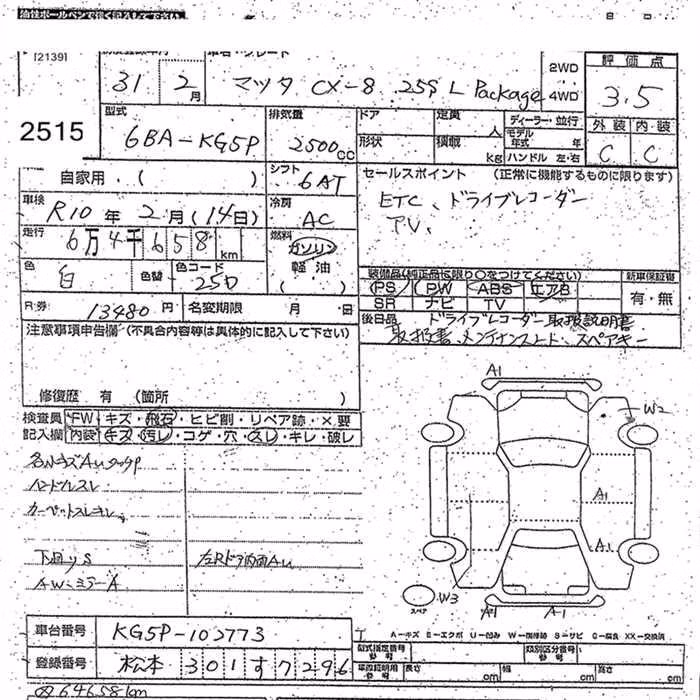 油性ボールペンで強く記入して下さい
[2139]
31 2月 マツタ CX-8 25S L Package 2WD 4WD
評価点 3.5
2515
型式 6BA-KG5P 排気量 2500cc ドア 定員 人 ディーラー・並行
形状 積載 kg モデル年式 年 ハンドル 左・右
外装 内装 C C
自家用.( ) シフト 6AT
セールスポイント (正常に機能するものに限ります)
ETC、ドライブレコーダー
TV、
車検 R10年2月(14日) 冷房 AC
走行 6万4千658km 燃料 ガソリン 軽油 ( )
色 白 色替 色コード 25D
装備品(純正品に限り○をつけてください) 新車保証書
PS PW ABS エアB 有・無
SR ナビ TV
R券 13480円 名変期限 月 日
後日品 ドライブレコーダー取扱説明書
取扱書、メンテナンスノート、スペアキー
注意事項申告欄(不具合内容等は具体的に記入して下さい)
修復歴 有 (箇所 )
検査員 FW キズ・飛石・ヒビ割・リペア跡・×要
記入欄 内装 キズ 汚レ・コゲ・穴・スレ・キレ・破レ
ハンドルスレ
カーペットスレキレ
下回りS 左Rドア内面AU
AW・ミラーA
A1
W2
A1
A1
W3
スペア
A1 A-1
A-キズ E-エクボ U-凹み W-補修跡 S-サビ C-腐食 XX-交換済
車台番号 KG5P-102773
登録番号 松本 301す7296
型式指定番号 類別区分番号
車両証明用参考 長さ cm 幅 cm 高さ cm
64658km